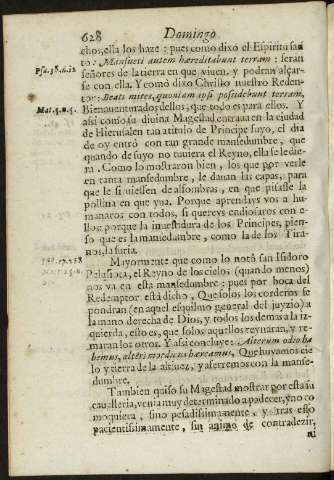 628 Domingo
chos, ella los haze : pues como dixo el Espiritu san
Psa. 36. to : Mansueti autem hæreditabunt terram : seran
señores de la tierra en que viuen, y podran alçar-
se con ella. Y como dixo Christo nuestro Reden-
tor: Beati mites, quoniam ipsi possidebunt terram,
Mat. 5. Bienauenturados dellos, que todo es para ellos. Y
assi como su diuina Magestad entraua en la ciudad
de Hierusalen tan a titulo de Principe suyo, el dia
de oy entrò con tan grande mansedumbre, que
quando de suyo no tuuiera el Reyno, ella se le die-
ra. Como lo mostraron bien, los que por verle
en tanta mansedumbre, le dauan las capas, para
que le siruiessen de alfombras, en que pisasse la
pollina en que yua. Porque aprendays vos a hu-
manaros con todos, si quereys endiosaros con e-
llos: porque la inuestidura de los Principes, pien-
so que es la mansedumbre, como la de los Tira-
nos, la furia.
Mayormente que como lo notò san Isidoro
Pelusiota, el Reyno de los cielos (quando menos)
nos va en esta mansedumbre: pues por boca del
Redemptor està dicho, Que solos los corderos se
pondran (en aquel esquilmo general del juyzio) a
la mano derecha de Dios, y todos los demas a la iz-
quierda, esto es, que solos aquellos reynaràn, y re-
maran los otros. Y assi concluye: Alterum odio ha
bemus, alteri mordicus hæreamus, Que huyamos cie
lo y tierra de la , y aferremos con la manse-
dumbre.
Tambien quiso su Magestad mostrar por esta su
caualleria, venia muy determinado a padecer, y no co
moquiera, sino pesadissimamente, y tras esso
pacientissimamente, sin animo de contradezir,
ni